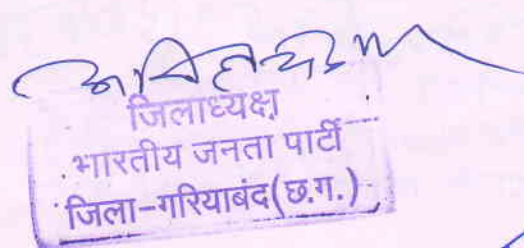 जिलाध्यक्ष
भारतीय जनता पार्टी
जिला-गरियाबंद(छ.ग.)